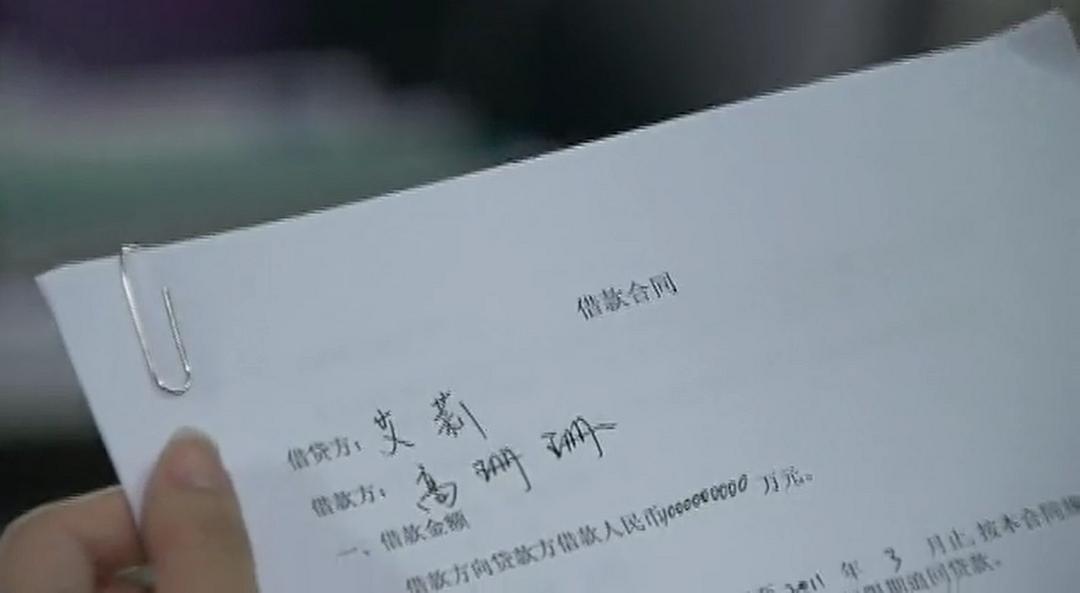 借款合同
借贷方：艾莉
借款方：高珊珊
一、借款金额
借款方向贷款方借款人民币1000000000万元。
2011年3月止，按本合同
期追回贷款。